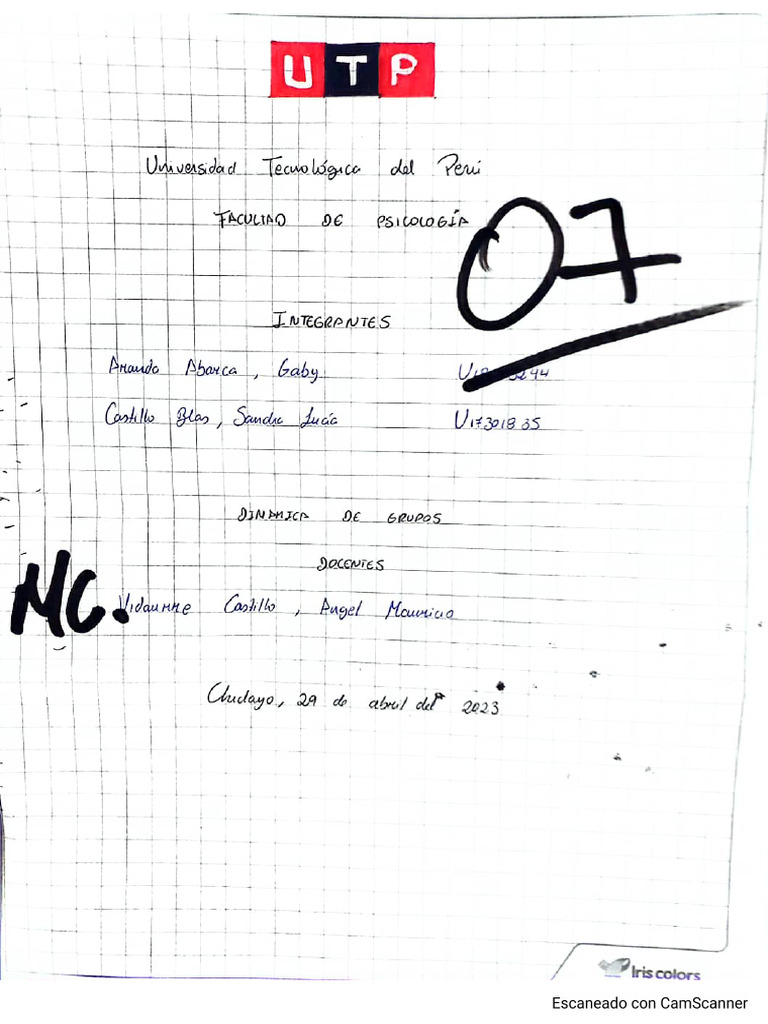 UTP
Universidad Tecnológica del Perú
FACULTAD DE PSICOLOGÍA
07
INTEGRANTES
Abarca, Gaby
Castillo Blas, Sandra Lucía U17301835
DINAMICA DE GRUPOS
DOCENTES
MC. Vidaurre Castillo, Angel Mauricio
Chiclayo, 29 de abril del 2023
Iris colors
Escaneado con CamScanner